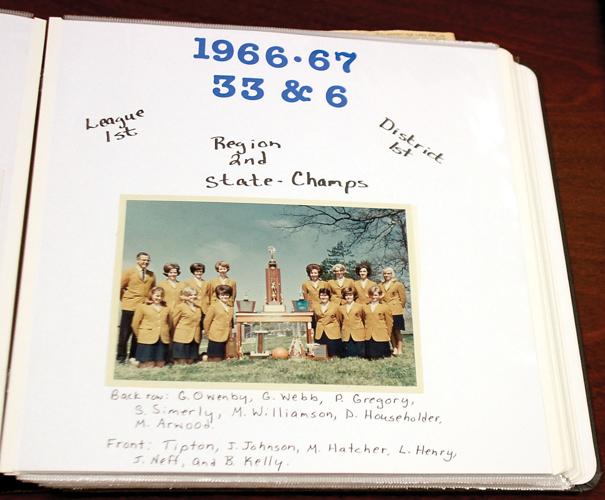 1966-67
33 & 6
League
1st
District
1st
Region
2nd
State-Champs
Back row: G. Owenby, G. Webb, P. Gregory,
S. Simerly, M. Williamson, D. Householder,
M. Arwood.
Front: Tipton, J. Johnson, M. Hatcher, L. Henry,
J. Neff, and B. Kelly.